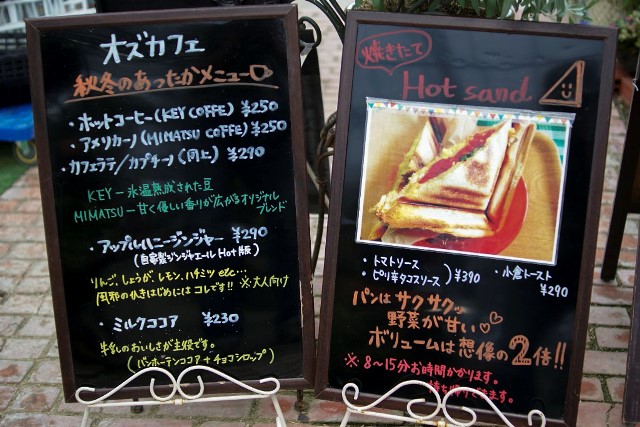 オズカフェ
秋冬のあったかメニュー
・ホットコーヒー(KEY COFFE) ¥250
・アメリカーノ(MIMATSU COFFE) ¥250
・カフェラテ/カプチーノ(同上) ¥290
KEY ー 氷温熟成された豆
MIMATSU ー 甘く優しい香りが広がるオリジナル
ブレンド
・アップルハニージンジャー ¥290
(自家製ジンジャエール Hot版)
りんご、しょうが、レモン、ハチミツ etc… ※大人向け
風邪のひきはじめには コレです!!
・ミルクココア ¥230
牛乳のおいしさが主役です。
(バンホーテンココア+チョコシロップ)
焼きたて
Hot sand
・トマトソース
・ピリ辛タコスソース ¥390
・小倉トースト
¥290
パンはサクサクッ
野菜が甘い♡♡
ボリュームは想像の2倍!!
※8〜15分お時間かかります。
持ち帰りできます。